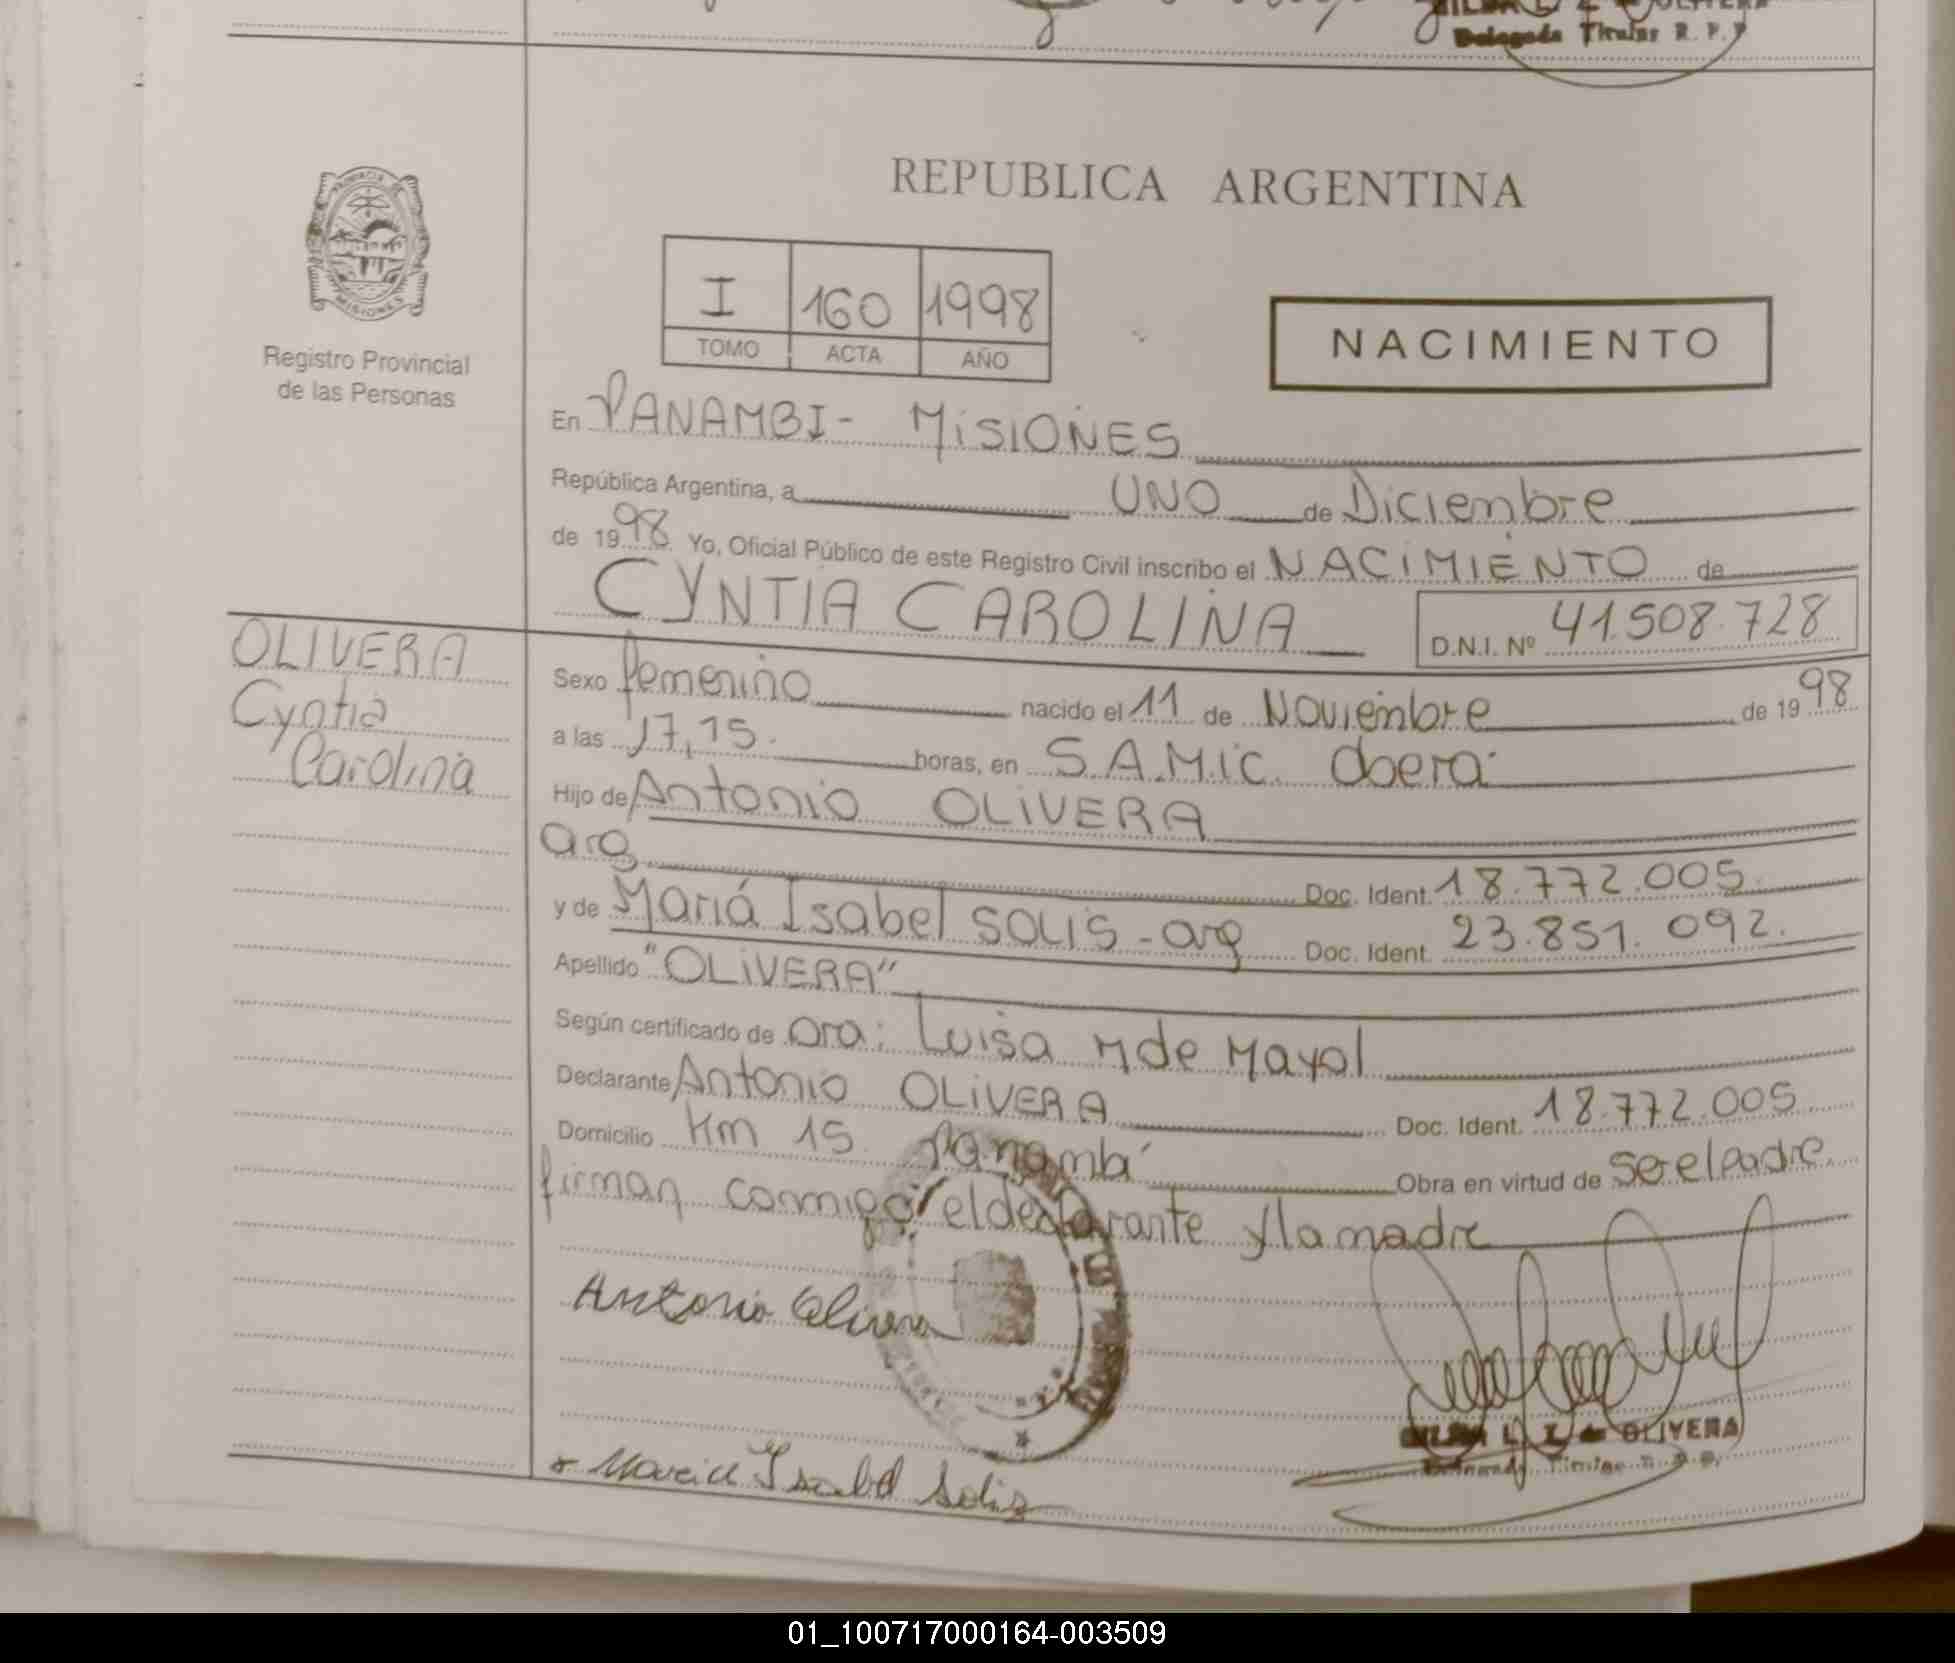 Delegada Titular R. P. P
REPUBLICA ARGENTINA
PROVINCIA DE
MISIONES
Registro Provincial
de las Personas
I 160 1998
TOMO ACTA AÑO
NACIMIENTO
En PANAMBI - MISIONES
República Argentina, a UNO de Diciembre
de 1998 Yo, Oficial Público de este Registro Civil inscribo el NACIMIENTO de
CYNTIA CAROLINA D.N.I. Nº 41.508.728
OLIVERA
Cyntia
Carolina
Sexo femenino nacido el 11 de Noviembre de 1998
a las 17,15. horas, en S.A.M.I.C. Obera
Hijo de Antonio OLIVERA
arg Doc. Ident. 18.772.005
y de María Isabel SOLIS - arg Doc. Ident. 23.851.092.
Apellido "OLIVERA"
Según certificado de Dra: Luisa M de Mayol
Declarante Antonio OLIVERA Doc. Ident. 18.772.005
Domicilio Km 15 Panambí Obra en virtud de ser el padre
firman conmigo el declarante y la madre
Antonio Olivera
OLIVERA
Maria Isabel Solis
01_100717000164-003509